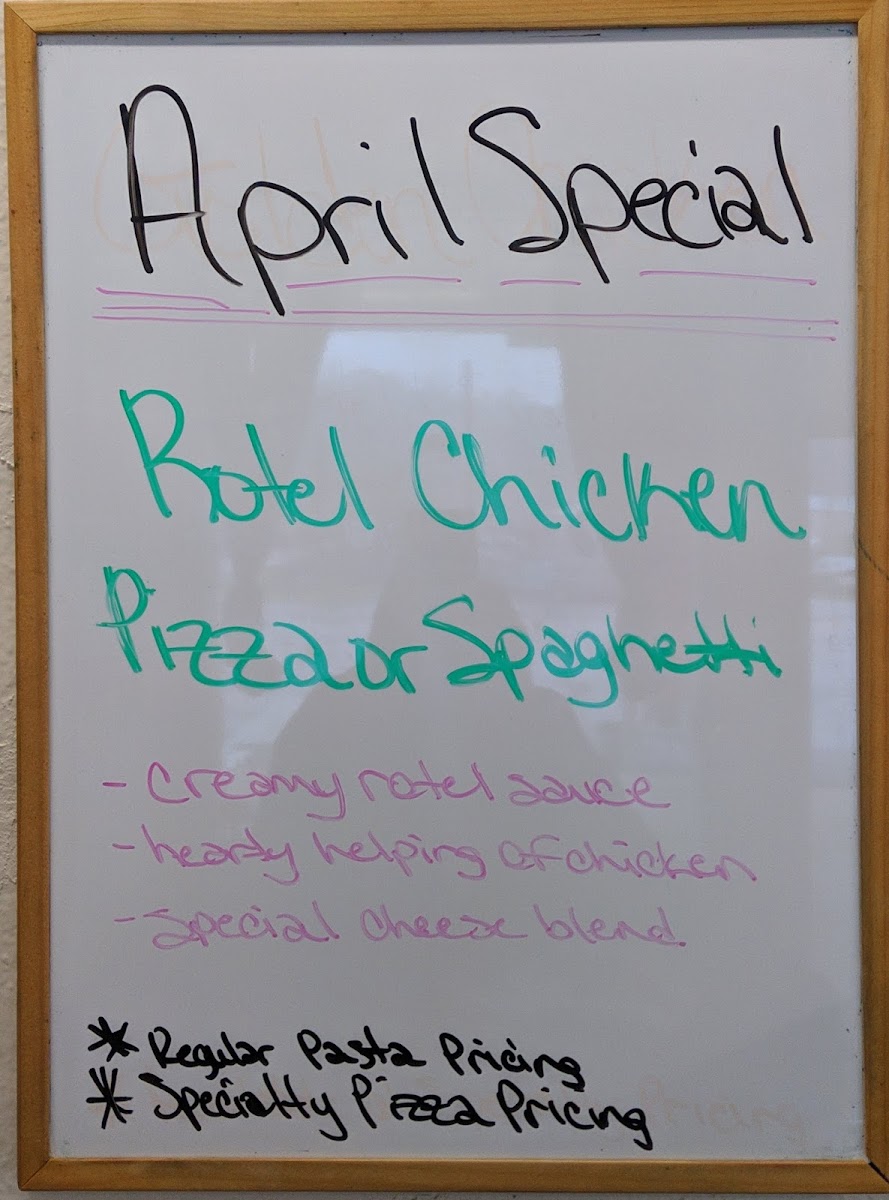 April Special
Rotel Chicken
Pizza or Spaghetti
- creamy rotel sauce
- hearty helping of chicken
- special cheese blend
* Regular Pasta Pricing
* Specialty Pizza Pricing